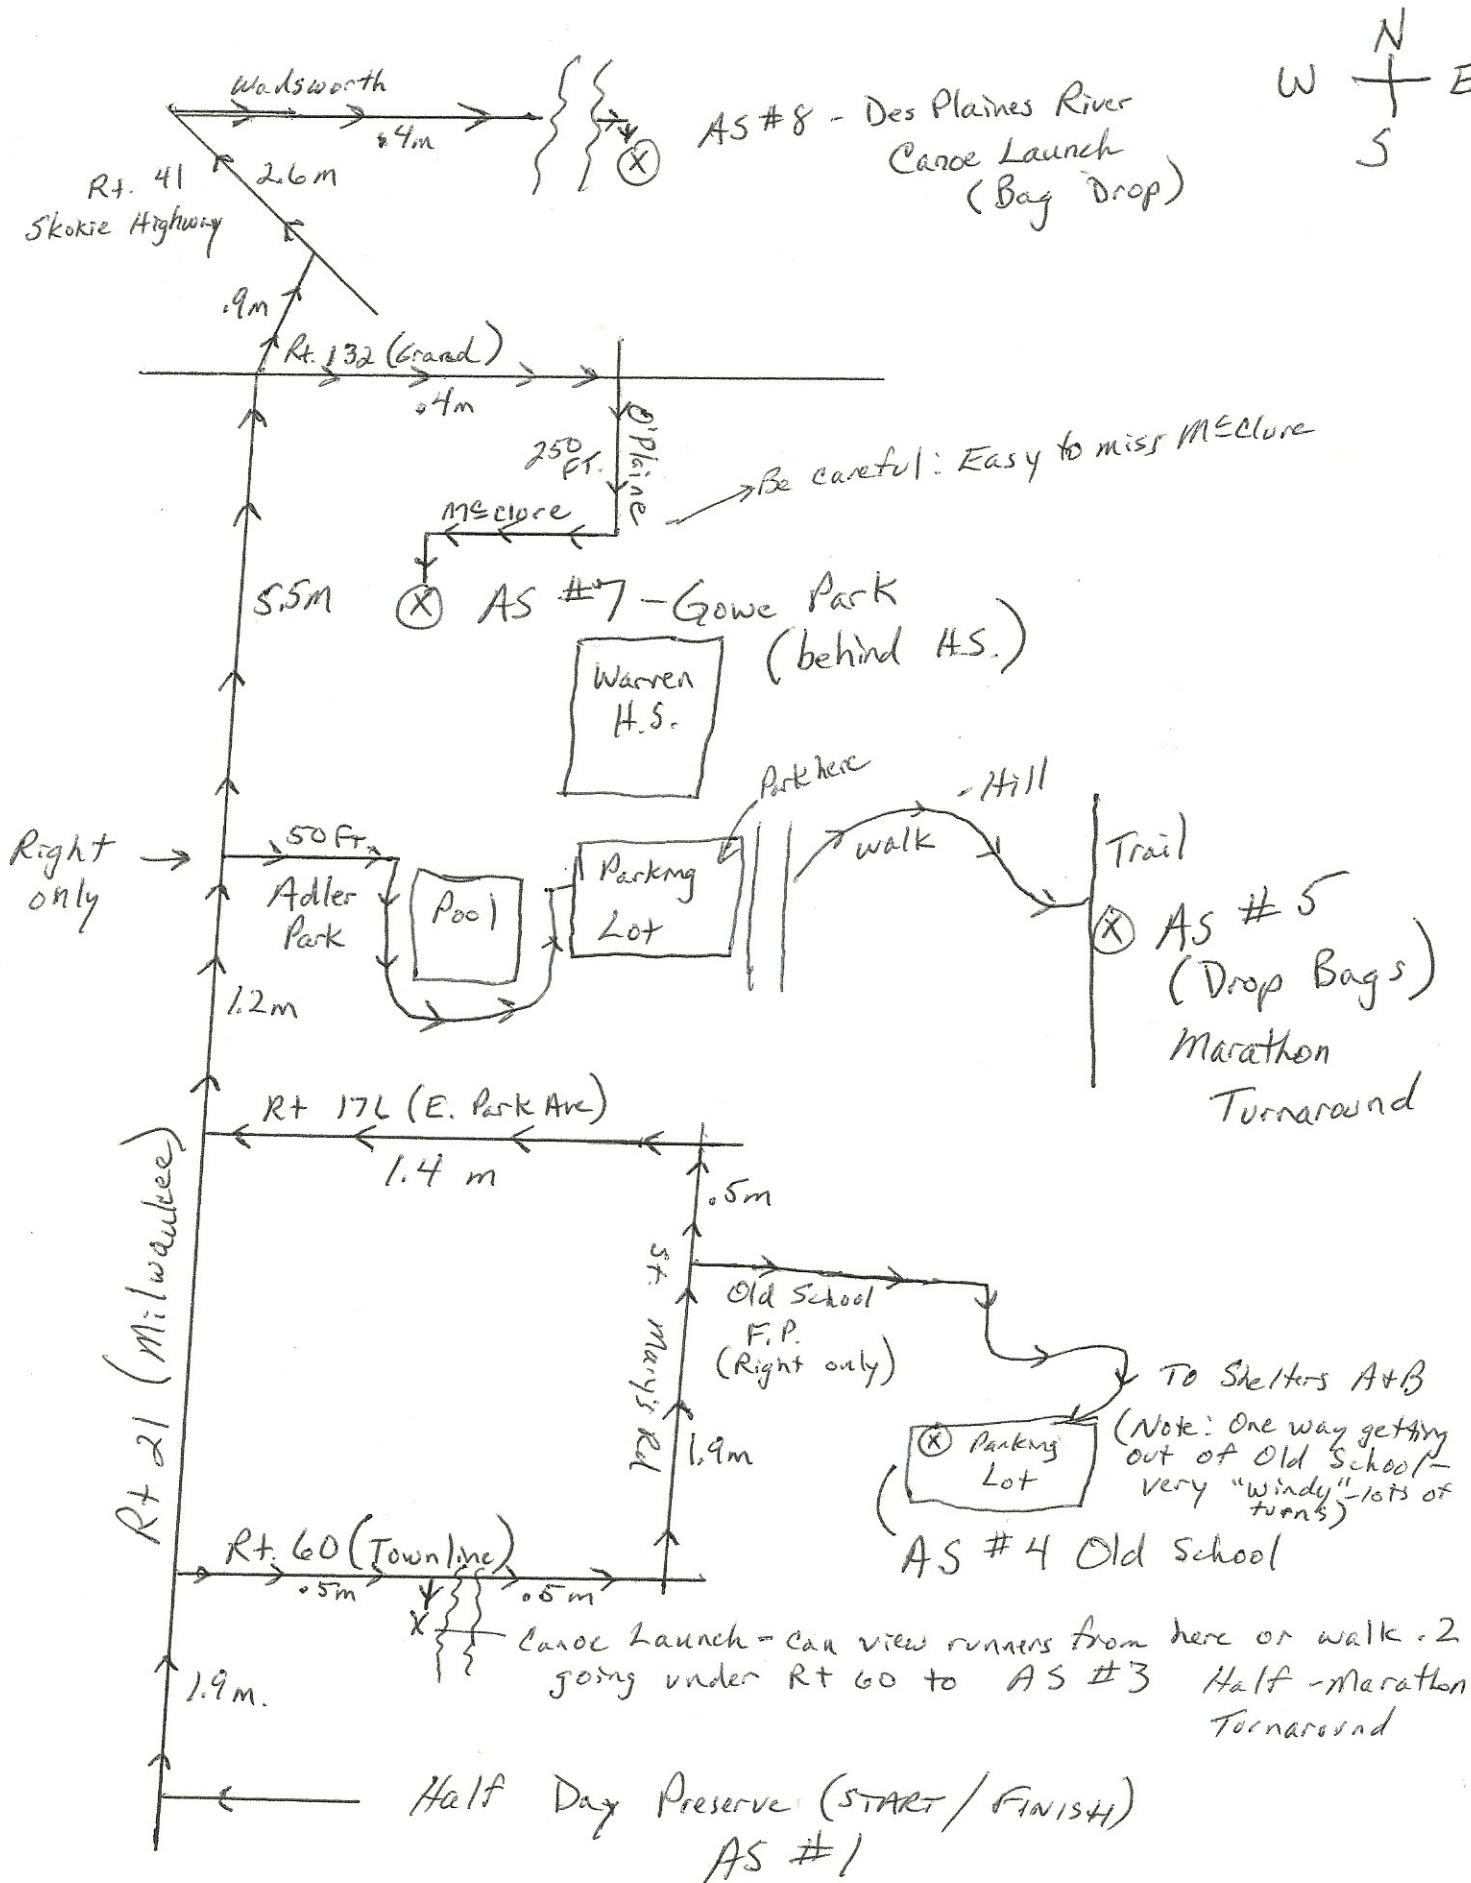 N
W E
S
Wadsworth
.4m
AS #8 - Des Plaines River
Canoe Launch
(Bag Drop)
Rt. 41
Skokie Highway
2.6m
.9m
Rt. 132 (Grand)
.4m
O'Plaine
250
FT.
Be careful: Easy to miss McClure
McClure
5.5m
AS #7 - Gowe Park
(behind H.S.)
Warren
H.S.
Park here
- Hill
walk
Trail
Right
only
50 Ft.
Adler
Park
Pool
Parking
Lot
AS #5
(Drop Bags)
Marathon
Turnaround
1.2m
Rt 176 (E. Park Ave)
1.4 m
.5m
Rt 21 (Milwaukee)
St. Mary's Rd
Old School
F.P.
(Right only)
To Shelters A+B
(Note: One way getting
out of Old School -
very "windy" - lots of
turns)
Parking
Lot
1.9m
AS #4 Old School
Rt. 60 (Townline)
.5m
.5m
X
Canoe Launch - can view runners from here or walk .2
going under Rt 60 to AS #3 Half-Marathon
Turnaround
1.9m.
Half Day Preserve (START / FINISH)
AS #1